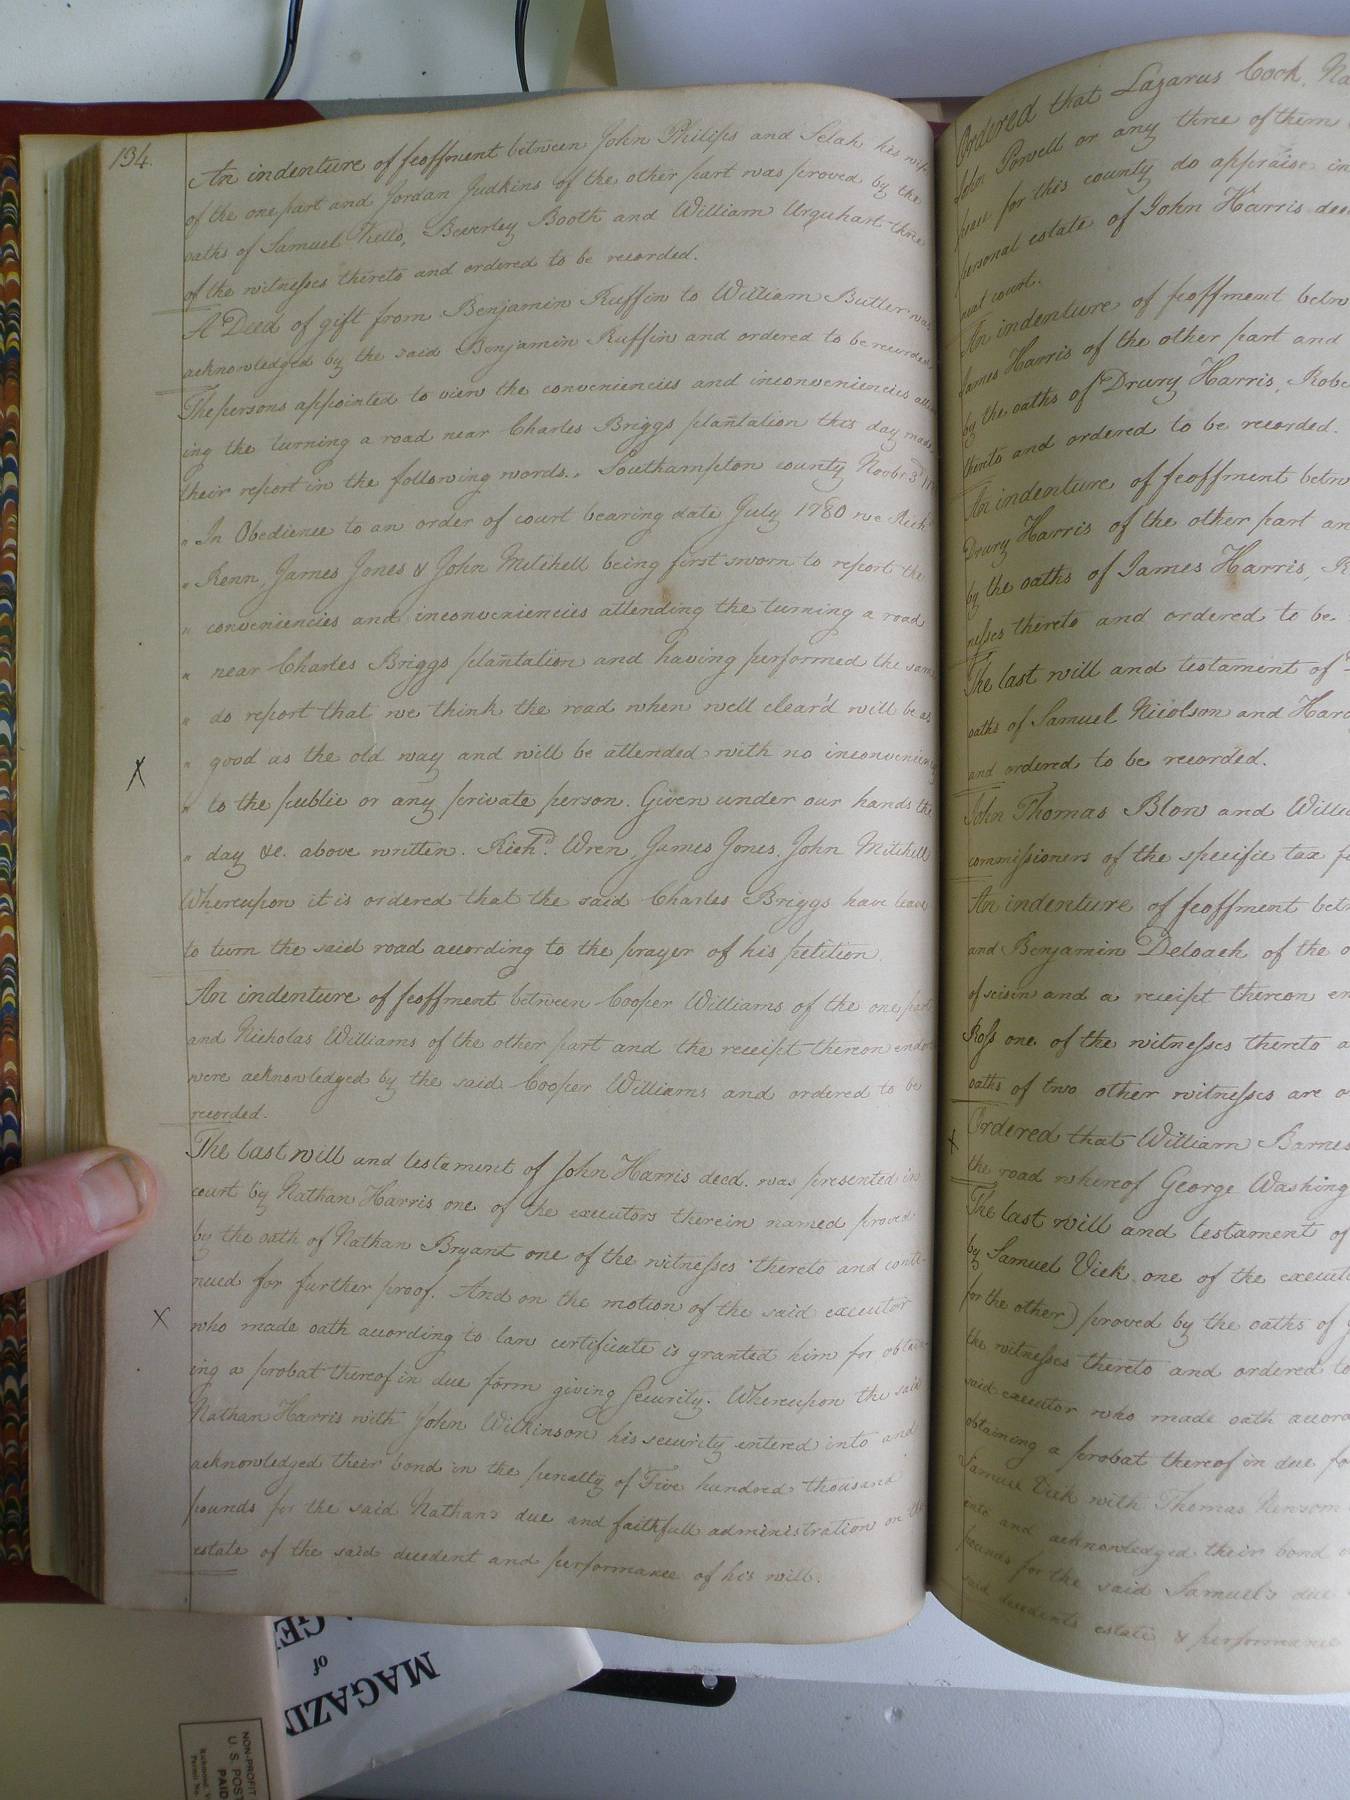 134.
An indenture of feoffment between John Philips and Selah his wife
of the one part and Jordan Judkins of the other part was proved by the
oaths of Samuel Kello, Beverley Booth and William Urquhart three
of the witnesses thereto and ordered to be recorded.
A Deed of gift from Benjamin Ruffin to William Butler was
acknowledged by the said Benjamin Ruffin and ordered to be recorded
The persons appointed to view the conveniencies and inconveniencies
ing the turning a road near Charles Briggs plantation this day made
their report in the following words. Southampton county Novbr 3d
" In Obedience to an order of court bearing date July 1780 we Richd
" Renn, James Jones & John Mitchell being first sworn to report the
" conveniencies and inconveniencies attending the turning a road
" near Charles Briggs plantation and having performed the same
" do report that we think the road when well clear'd will be as
" good as the old way and will be attended with no
" to the public or any private person. Given under our hands the
" day &c. above written. Richd. Wren, James Jones, John Mitchell
Whereupon it is ordered that the said Charles Briggs have leave
to turn the said road according to the prayer of his petition.
An indenture of feoffment between Cooper Williams of the one part
and Nicholas Williams of the other part and the receipt thereon
were acknowledged by the said Cooper Williams and ordered to be
recorded.
The last will and testament of John Harris decd. was presented in
court by Nathan Harris one of the executors therein named proved
by the oath of Nathan Bryant one of the witnesses thereto and conti-
nued for further proof. And on the motion of the said executor
who made oath according to law certificate is granted him for obtain-
ing a probat thereof in due form giving security. Whereupon the said
Nathan Harris with John Wilkinson his security entered into and
acknowledged their bond in the penalty of Five hundred thousand
pounds for the said Nathan's due and faithfull administration on the
estate of the said decedent and performance of his will.
X
X
Ordered that Lazarus Cook, Na
John Powell or any three of them
for this county do appraise in
personal estate of John Harris
court.
An indenture of feoffment betw
James Harris of the other part and
by the oaths of Drury Harris, Robe
thereto and ordered to be recorded.
An indenture of feoffment betw
Drury Harris of the other part an
by the oaths of James Harris, R
nesses thereto and ordered to be
The last will and testament of
oaths of Samuel Nicolson and Har
and ordered to be recorded.
John Thomas Blow and Willi
commissioners of the specific tax f
An indenture of feoffment bet
and Benjamin Deloach of the o
of seisin and a receipt thereon en
Ross one of the witnesses thereto a
oaths of two other witnesses are o
X
Ordered that William Barnes
the road whereof George Washing
The last will and testament of
by Samuel Vick one of the executo
for the other) proved by the oaths of
the witnesses thereto and ordered to
said executor who made oath accord
obtaining a probat thereof in due fo
Samuel Vick with Thomas Newsom
into and acknowledged their bond
pounds for the said Samuel's due
said decedents estate & performance
MAGAZIN
of
GE
NON-PROFIT
U. S. POST
PAID
Richmond, V
Permit No.